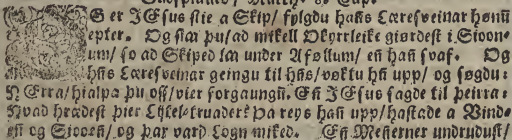 G er JEsus stie a Skip/ fylgdu hans Læresveinar hønum
epter. Og siar þu/ ad mikell Okyrrleike giørdest i Sioon-
um/ so ad Skiped læ under Aføllum/ en han svaf. Og
hans Læresveinar geingu til hns/ vøktu hn upp/ og søgdu:
HErra/ hialpa þu oss/ vier forgaungum. En JEsus sagde til þeirra:
Hvad hrædest þier Lijtel-truader? Þa reys han upp/ hastade a Vind-
en og Sioen/ og þar vard Logn miked. En Mennerner undrudust/